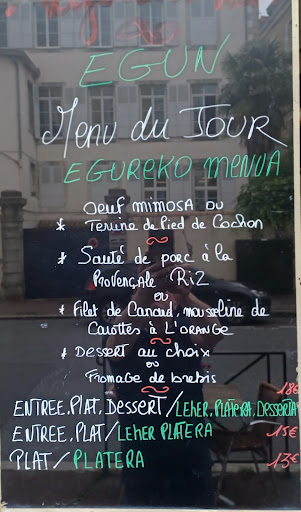 EGUN
Menu du JOUR
EGUREKO MENUA
Oeuf mimosa ou
* Terrine de Pied de Cochon
* Sauté de porc à la
Provençale Riz
ou
* Filet de Canard, mousseline de
Carottes à L'ORANGE
* Dessert au choix
ou
Fromage de brebis
18€
ENTREE.Plat.Dessert/Leher.Platera.Desserta
ENTREE.Plat/Leher PLATERA 15€
PLAT/PLATERA 13€